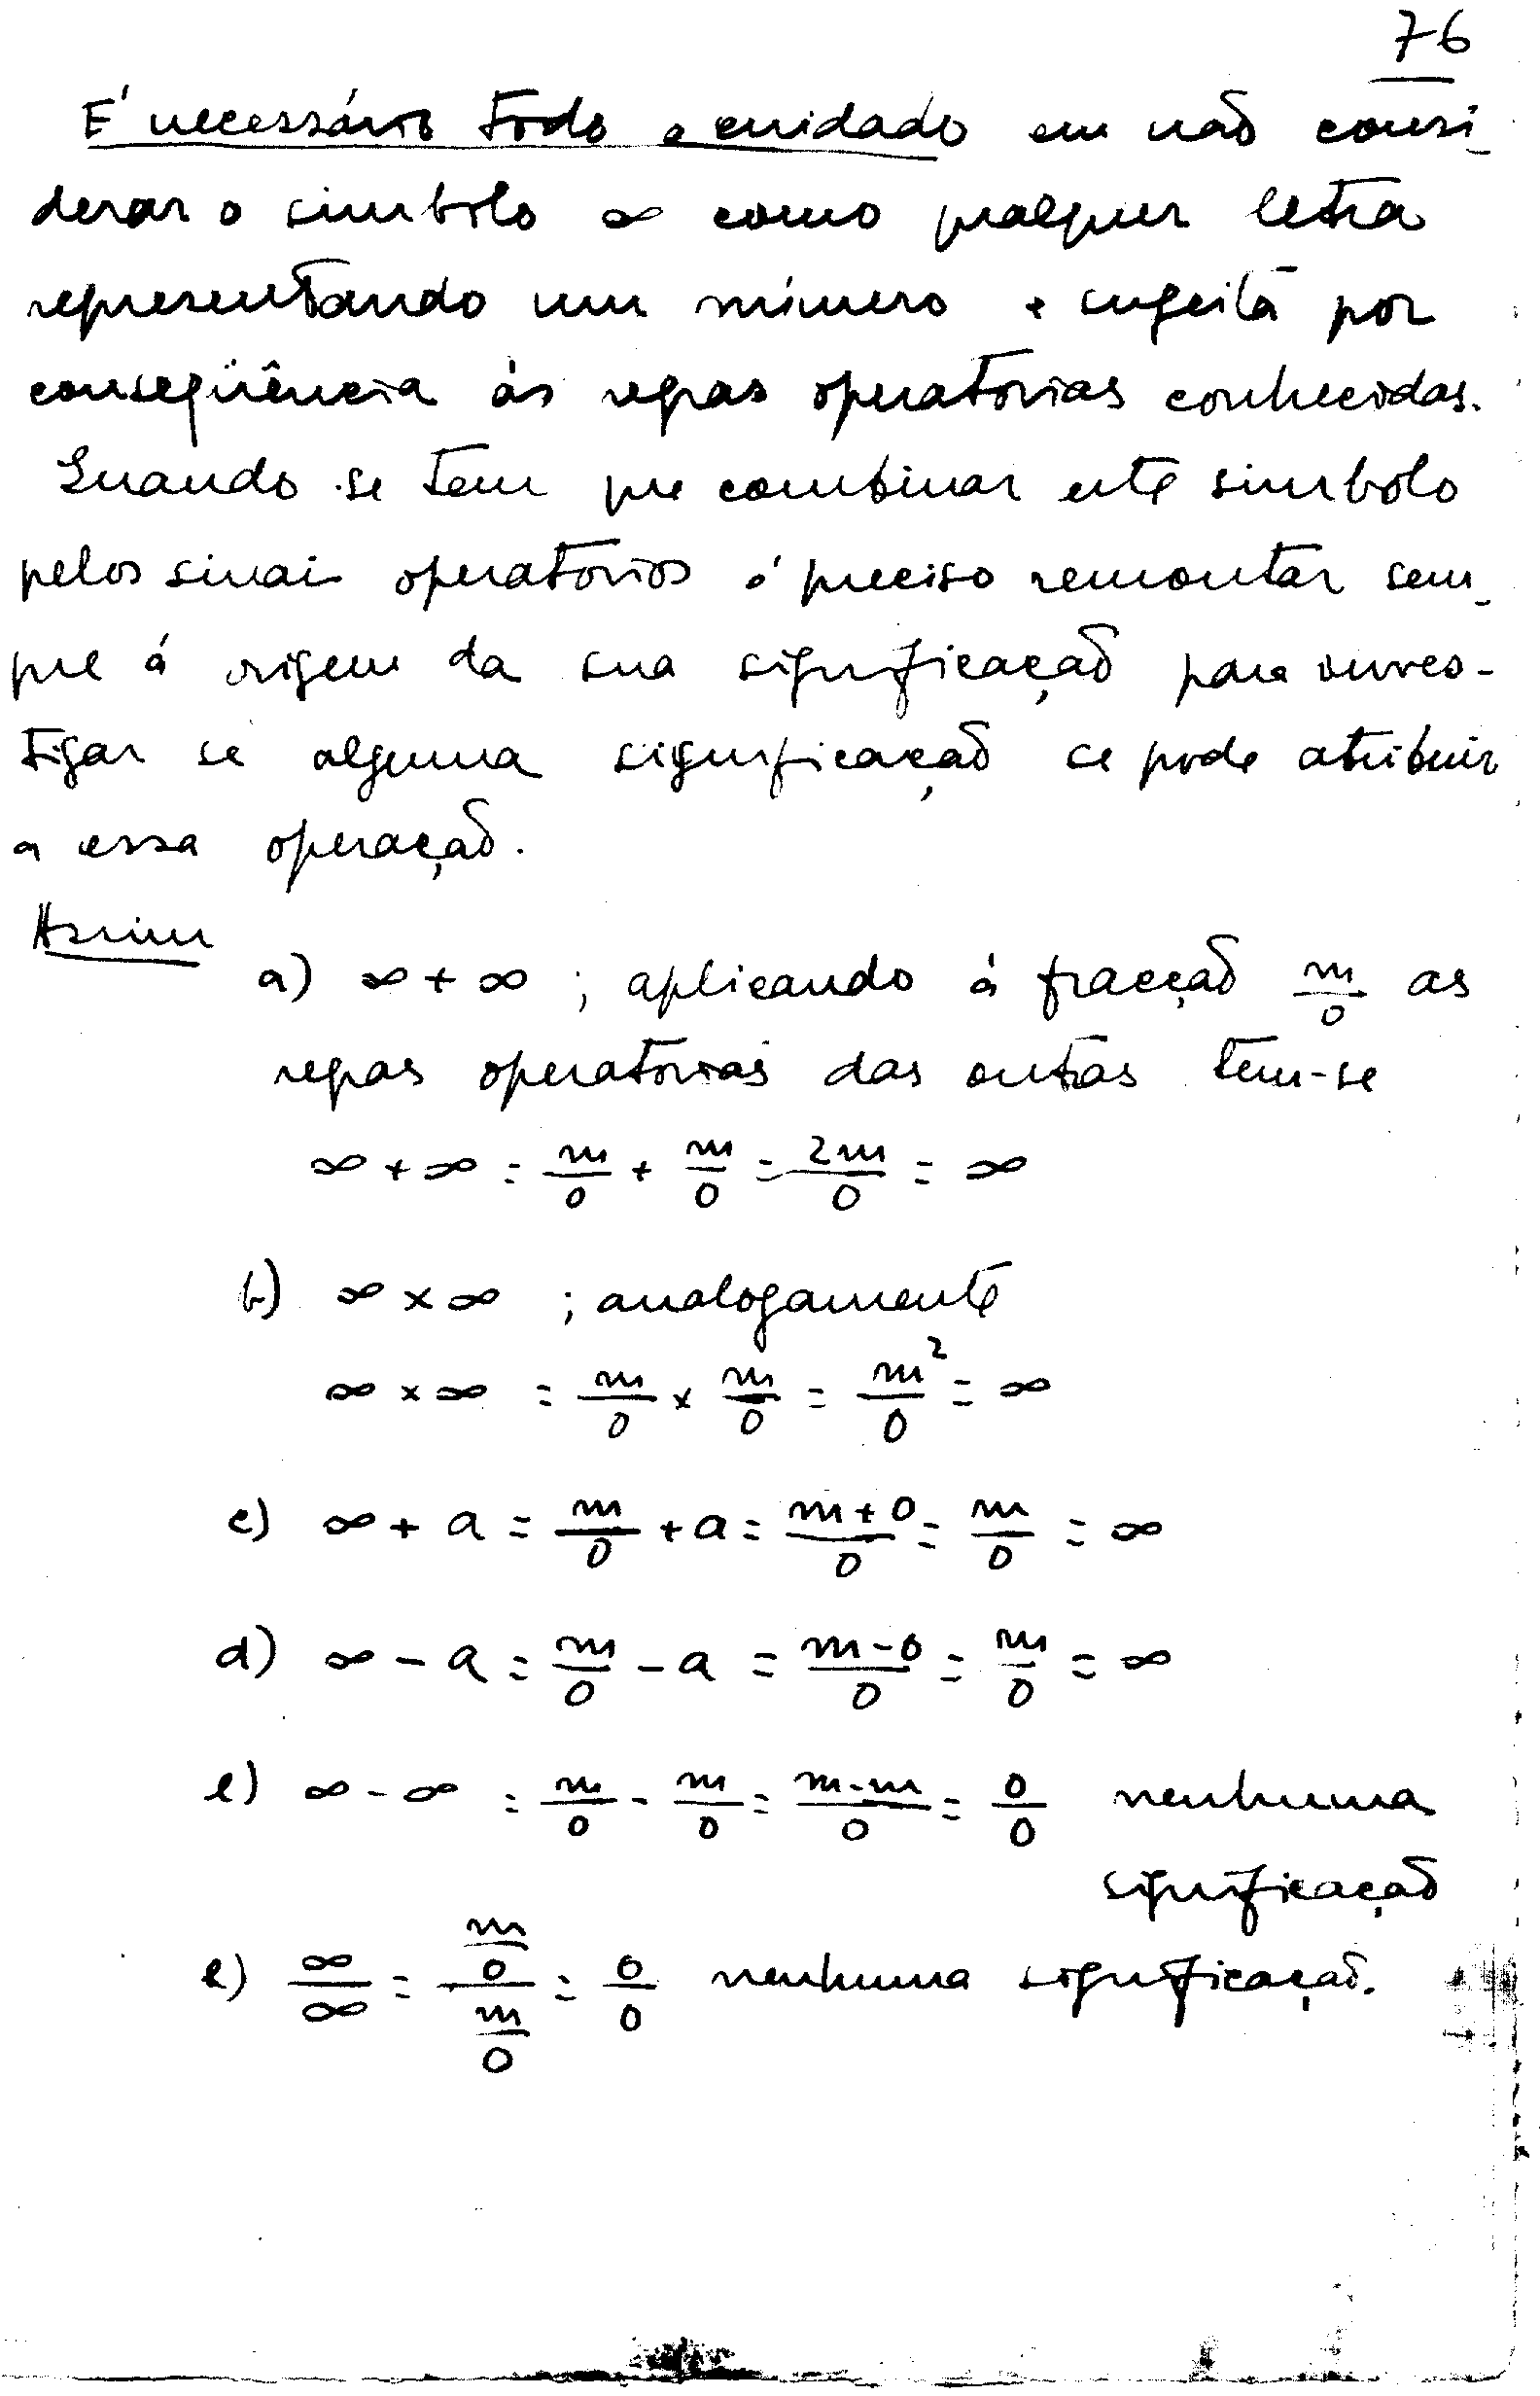 76
E' necessário todo o cuidado em não consi-
derar o simbolo ∞ como qualquer letra
representando um número e sugeita por
conseqüência às regras operatorias conhecidas.
Quando se tem que combinar este simbolo
pelos sinais operatorios é preciso remontar sem-
pre á origem da sua significação para inves-
tigar se alguma significação se pode atribuir
a essa operação.
Assim
a) ∞ + ∞ ; aplicando á fracção m/0 as
regras operatorias das outras tem-se
∞ + ∞ = m/0 + m/0 = 2m/0 = ∞
b) ∞ × ∞ ; analogamente
∞ × ∞ = m/0 × m/0 = m²/0 = ∞
c) ∞ + a = m/0 + a = (m+0)/0 = m/0 = ∞
d) ∞ - a = m/0 - a = (m-0)/0 = m/0 = ∞
e) ∞ - ∞ = m/0 - m/0 = (m-m)/0 = 0/0 nenhuma
significação
e) ∞/∞ = (m/0)/(m/0) = 0/0 nenhuma significação.